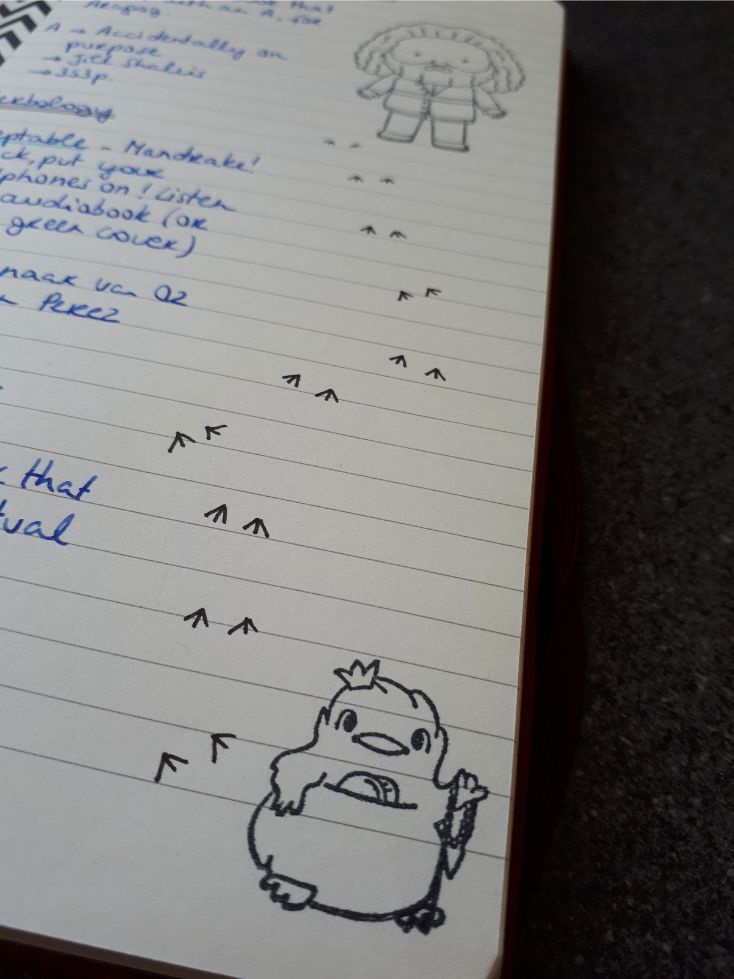 that
with an A, for
Aragog.
A → Accidentally on
purpose
→ Jill Shalvis
→ 353p.
Herbology
eptable - Mandrake!
ck, put your
phones on! Listen
audiobook (or
green cover)
naar van Oz
n Perez
that
tual